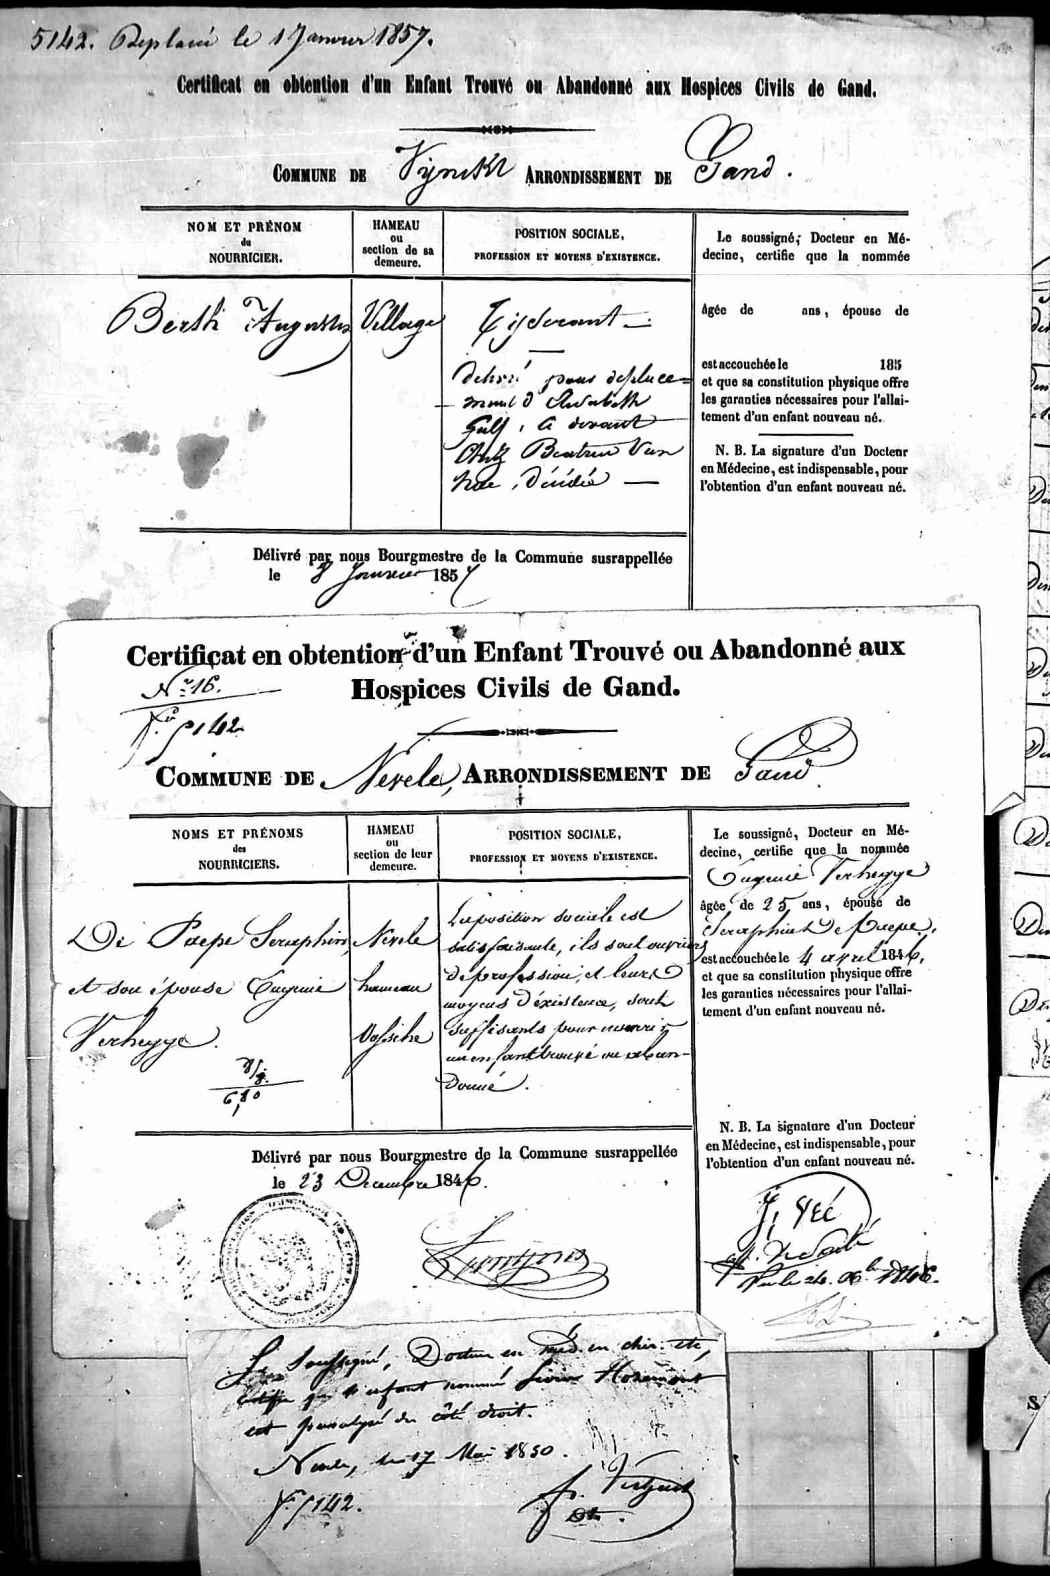 5142. Replacé le 17 Janvier 1857.
Certificat en obtention d'un Enfant Trouvé ou Abandonné aux Hospices Civils de Gand.
COMMUNE DE Vynckt ARRONDISSEMENT DE Gand.
NOM ET PRÉNOM
du
NOURRICIER.
HAMEAU
ou
section de sa
demeure.
POSITION SOCIALE,
PROFESSION ET MOYENS D'EXISTENCE.
Le soussigné, Docteur en Mé-
decine, certifie que la nommée
âgée de ans, épouse de
est accouchée le 185
et que sa constitution physique offre
les garanties nécessaires pour l'allai-
tement d'un enfant nouveau né.
N. B. La signature d'un Docteur
en Médecine, est indispensable, pour
l'obtention d'un enfant nouveau né.
Village
Tisserant
Délivré pour déplace-
ment d'
Chez Beatrice Van
décédée
Délivré par nous Bourgmestre de la Commune susrappellée
le 8 Janvier 1857
Certificat en obtention d'un Enfant Trouvé ou Abandonné aux
Hospices Civils de Gand.
No 16.
5142
COMMUNE DE Nevele, ARRONDISSEMENT DE Gand
NOMS ET PRÉNOMS
des
NOURRICIERS.
HAMEAU
ou
section de leur
demeure.
POSITION SOCIALE,
PROFESSION ET MOYENS D'EXISTENCE.
De Paepe Seraphin,
et son épouse Eugenie
Verhegge.
8/8.
6,80
Nevele
hameau
La position sociale est
satisfaisante, ils sont ouvriers
de profession, et leurs
moyens d'éxistence, sont
suffisants pour nourrir
un enfant trouvé ou aban-
donné.
Le soussigné, Docteur en Mé-
decine, certifie que la nommée
Eugenie Verhegge
âgée de 25 ans, épouse de
Seraphin De Paepe,
est accouchée le 4 avril 1846,
et que sa constitution physique offre
les garanties nécessaires pour l'allai-
tement d'un enfant nouveau né.
N. B. La signature d'un Docteur
en Médecine, est indispensable, pour
l'obtention d'un enfant nouveau né.
Délivré par nous Bourgmestre de la Commune susrappellée
le 23 Decembre 1846.
1846.
Le Soussigné, Docteur en méd. en chir. etc,
certifie que l'enfant nommé
est paralysé du côté droit.
Nevele, le 17 Mai 1850.
5142.